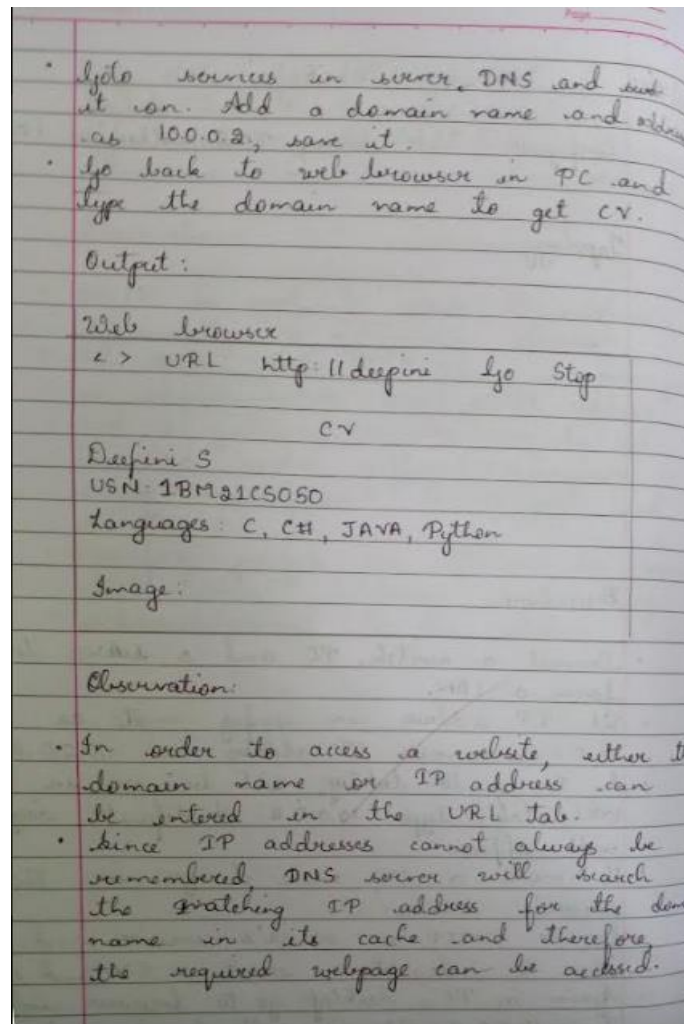 Page
• Goto services in server, DNS and
it on. Add a domain name and address
as 10.0.0.2, save it.
• Go back to web browser in PC and
type the domain name to get CV.
Output:
Web browser
< > URL http://deepini Go Stop
CV
Deepini S
USN: 1BM21CS050
Languages: C, C++, JAVA, Python
Image:
Observation:
• In order to access a website, either t
domain name or IP address can
be entered in the URL Tab.
• Since IP addresses cannot always be
remembered, DNS server will search
the matching IP address for the dom
name in its cache and therefore,
the required webpage can be accessed.